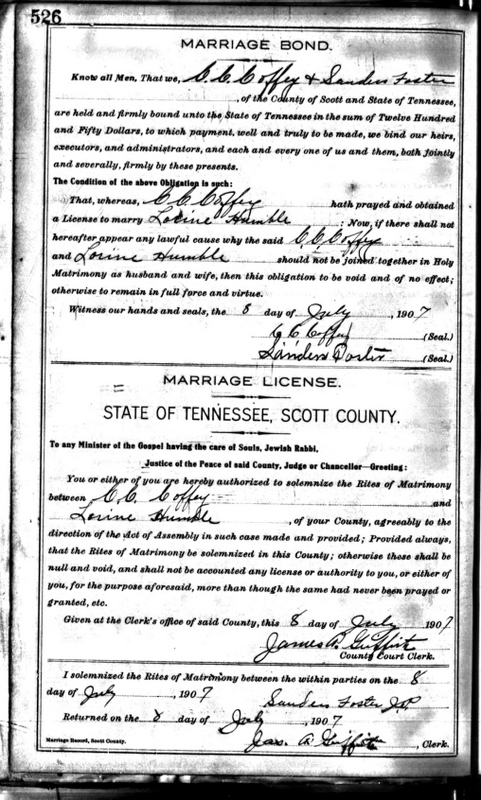 526
MARRIAGE BOND.
Know all Men, That we, C. C. Coffey & Sanders Foster
, of the County of Scott and State of Tennessee,
are held and firmly bound unto the State of Tennessee in the sum of Twelve Hundred
and Fifty Dollars, to which payment, well and truly to be made, we bind our heirs,
executors, and administrators, and each and every one of us and them, both jointly
and severally, firmly by these presents.
The Condition of the above Obligation is such:
That, whereas, C. C. Coffey hath prayed and obtained
a License to marry Lorine Humble : Now, if there shall not
hereafter appear any lawful cause why the said C. C. Coffey
and Lorine Humble should not be joined together in Holy
Matrimony as husband and wife, then this obligation to be void and of no effect;
otherwise to remain in full force and virtue.
Witness our hands and seals, the 8 day of July , 1907
C C Coffey (Seal.)
Sanders Foster (Seal.)
MARRIAGE LICENSE.
STATE OF TENNESSEE, SCOTT COUNTY.
To any Minister of the Gospel having the care of Souls, Jewish Rabbi,
Justice of the Peace of said County, Judge or Chancellor—Greeting:
You or either of you are hereby authorized to solemnize the Rites of Matrimony
between C. C. Coffey and
Lorine Humble , of your County, agreeably to the
direction of the Act of Assembly in such case made and provided; Provided always,
that the Rites of Matrimony be solemnized in this County; otherwise these shall be
null and void, and shall not be accounted any license or authority to you, or either of
you, for the purpose aforesaid, more than though the same had never been prayed or
granted, etc.
Given at the Clerk's office of said County, this 8 day of July 1907
James A. Griffith
County Court Clerk.
I solemnized the Rites of Matrimony between the within parties on the 8
day of July , 1907 Sanders Foster J.P.
Returned on the 8 day of July , 1907
Jas. A Griffith , Clerk.
Marriage Record, Scott County.